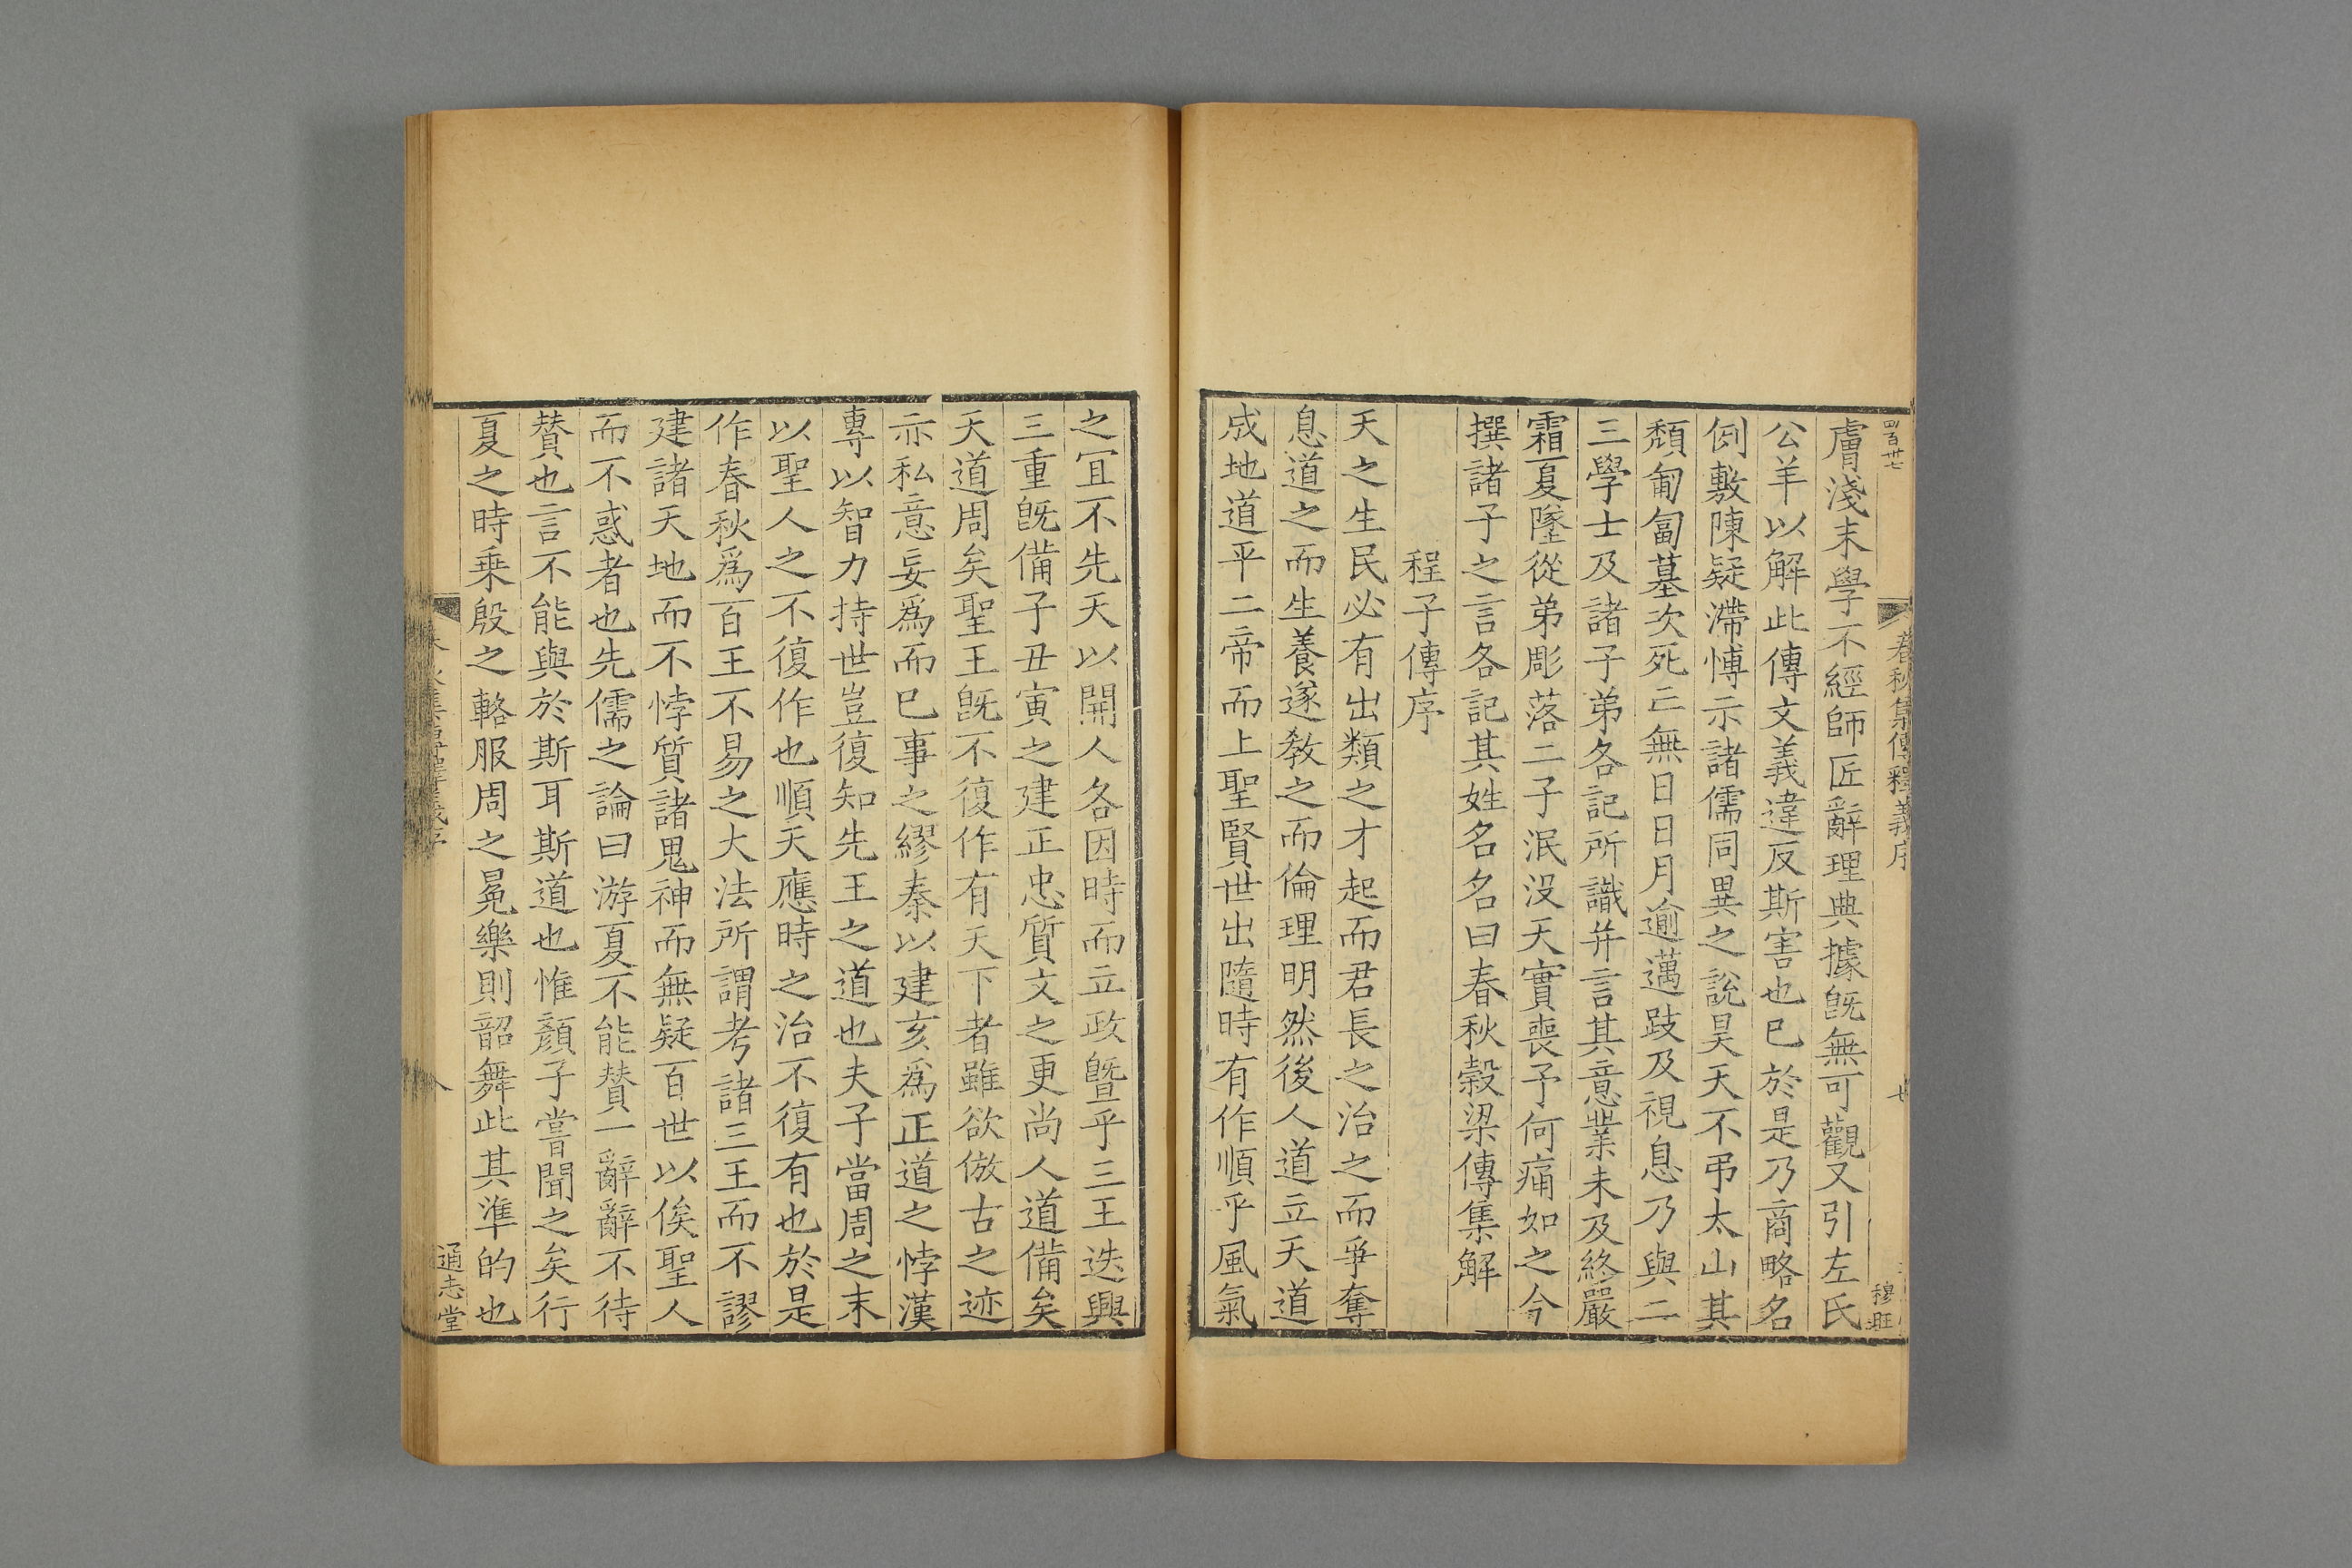 四百卅七
春秋集傳釋義序
穆旺
膚淺末學不經師匠辭理典據旣無可觀又引左氏
公羊以解此傳文義違反斯害也已於是乃商略名
例敷陳疑滯愽示諸儒同異之說昊天不弔太山其
頹匍匐墓次死亡無日日月逾邁跂及視息乃與二
三學士及諸子弟各記所識并言其意業未及終嚴
霜夏墜從弟彫落二子泯没天實喪予何痛如之今
撰諸子之言各記其姓名名曰春秋榖梁傳集解
程子傳序
天之生民必有出類之才起而君長之治之而爭奪
息道之而生養遂教之而倫理明然後人道立天道
成地道平二帝而上聖賢世出隨時有作順乎風氣
之宜不先天以開人各因時而立政曁乎三王迭興
三重旣備子丑寅之建正忠質文之更尚人道備矣
天道周矣聖王旣不復作有天下者雖欲倣古之迹
亦私意妄爲而已事之繆秦以建亥爲正道之悖漢
專以智力持世豈復知先王之道也夫子當周之末
以聖人之不復作也順天應時之治不復有也於是
作春秋爲百王不易之大法所謂考諸三王而不謬
建諸天地而不悖質諸鬼神而無疑百世以俟聖人
而不惑者也先儒之論曰游夏不能賛一辭辭不待
賛也言不能與於斯耳斯道也惟顏子嘗聞之矣行
夏之時乗殷之輅服周之冕樂則韶舞此其準的也
通志堂